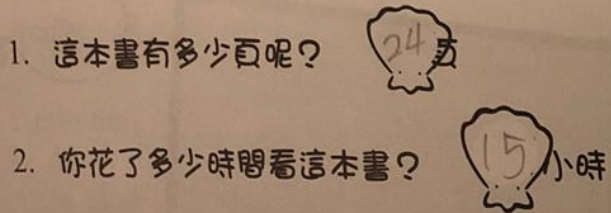 1. 這本書有多少頁呢？ 24 頁
2. 你花了多少時間看這本書？ 15 小時